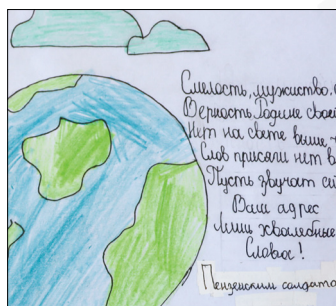 Смелость, мужиство,
Верность Родине свое
Нет на свете выше,
Слов присяги нет в
Пусть звучат
Ваш адрес
Лишь хвалебные
Слова!
Пензенским солдата